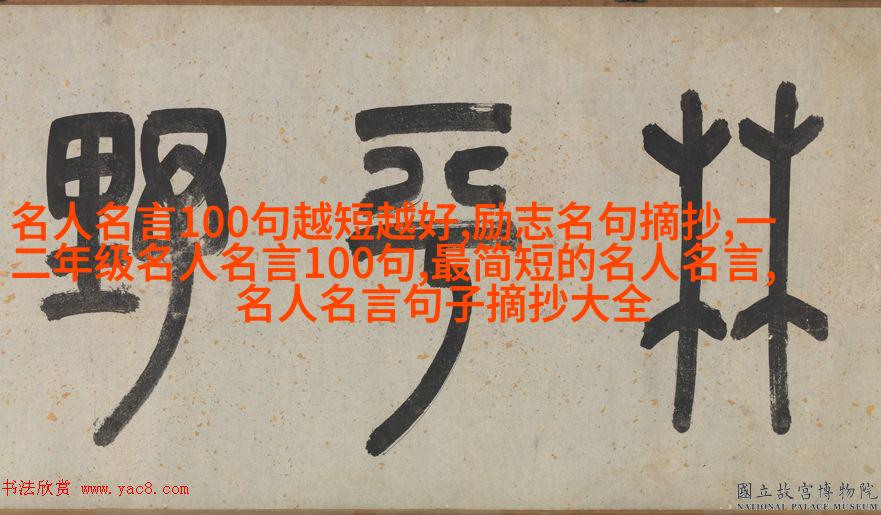 林平野
名人名言100句越短越好,励志名句摘抄,一
二年级名人名言100句,最简短的名人名言,
名人名言句子摘抄大全
书法欣赏 www.yac8.com
國立故宮博物院
NATIONAL PALACE MUSEUM